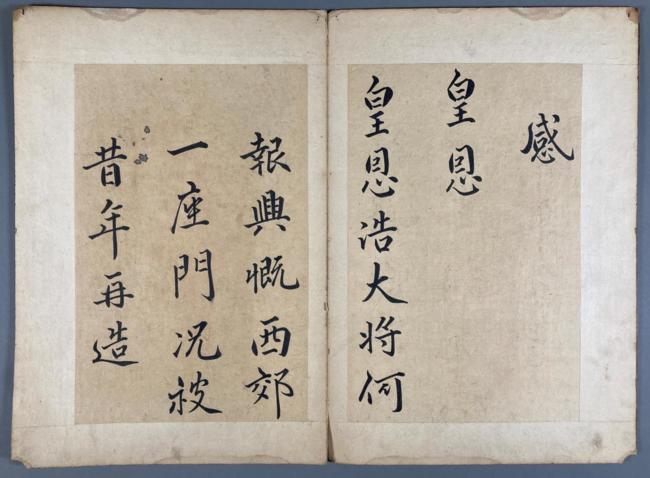 感
皇恩
皇恩浩大将何
報興慨西郊
一座門况被
昔年再造